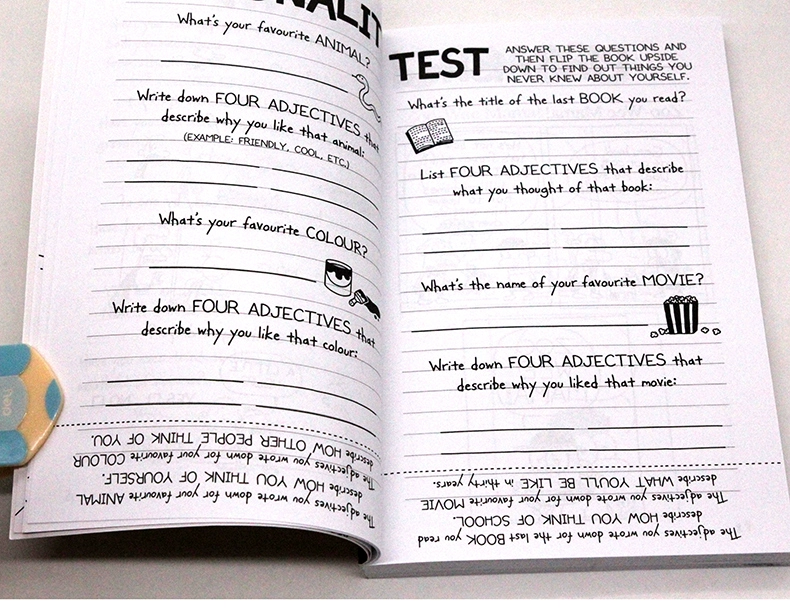 ONALIT
What's your favourite ANIMAL?
Write down FOUR ADJECTIVES that
describe why you like that animal:
(EXAMPLE: FRIENDLY, COOL, ETC.)
What's your favourite COLOUR?
Write down FOUR ADJECTIVES that
describe why you like that colour:
The adjectives you wrote down for your favourite ANIMAL
describe HOW YOU THINK OF YOURSELF.
The adjectives you wrote down for your favourite COLOUR
describe HOW OTHER PEOPLE THINK OF YOU.
TEST
ANSWER THESE QUESTIONS AND
THEN FLIP THE BOOK UPSIDE
DOWN TO FIND OUT THINGS YOU
NEVER KNEW ABOUT YOURSELF.
What's the title of the last BOOK you read?
List FOUR ADJECTIVES that describe
what you thought of that book:
What's the name of your favourite MOVIE?
Write down FOUR ADJECTIVES that
describe why you liked that movie:
The adjectives you wrote down for the last BOOK you read
describe HOW YOU THINK OF SCHOOL.
The adjectives you wrote down for your favourite MOVIE
describe WHAT YOU'LL BE LIKE in thirty years.